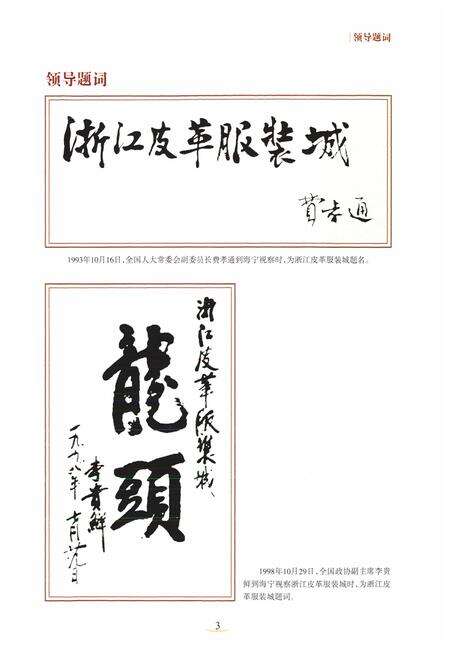 领导题词
领导题词
浙江皮革服装城
费孝通
1993年10月16日,全国人大常委会副委员长费孝通到海宁视察时,为浙江皮革服装城题名。
浙江皮革服装城
龍頭
李貴鮮
一九九八年十月廿九日
1998年10月29日,全国政协副主席李贵
鲜到海宁视察浙江皮革服装城时,为浙江皮
革服装城题词。
3